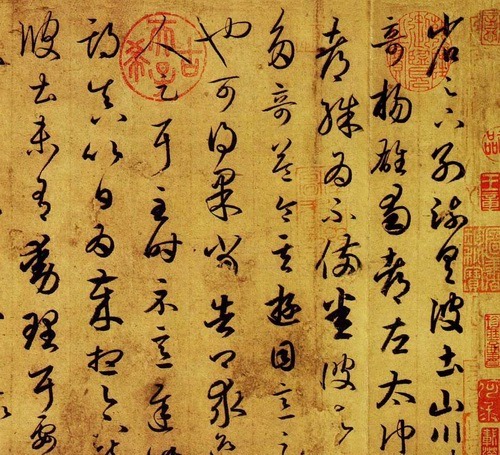 省足下別疏具彼土山川
奇揚雄蜀都左太沖
都殊為不備悉彼故
多奇益令其遊目意足
也可得果當告卿求迎
人足耳至時示意遲
期真以日為歲想足下
彼土未有動理耳要